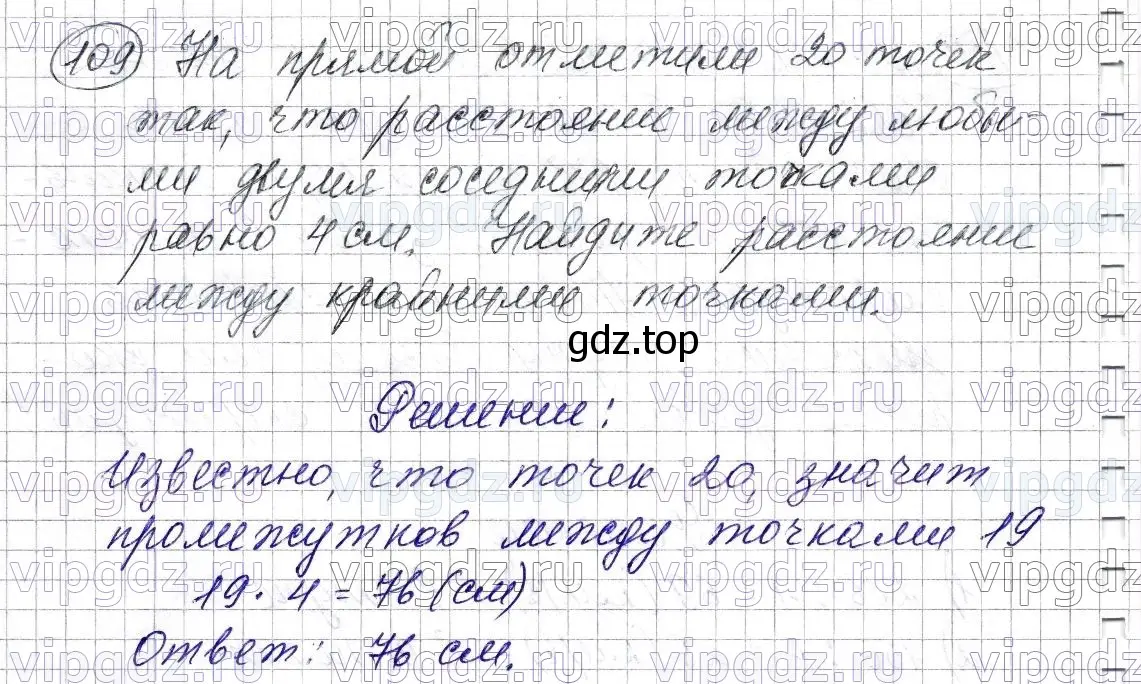 109 На прямой отметили 20 точек
так, что расстояние между любы-
ми двумя соседними точками
равно 4 см. Найдите расстояние
между крайними точками.
gdz.top
Решение:
Известно, что точек 20, значит
промежутков между точками 19
19 · 4 = 76 (см)
Ответ: 76 см.